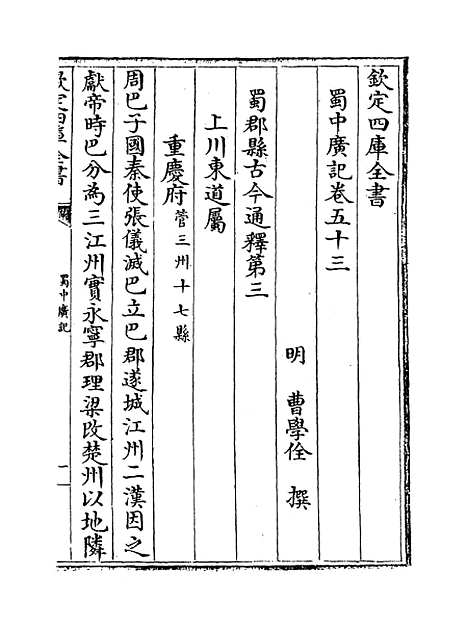 欽定四庫全書
蜀中廣記卷五十三
明 曹學佺 撰
蜀郡縣古今通釋第三
上川東道屬
重慶府管三州十七縣
周巴子國秦使張儀滅巴立巴郡遂城江州二漢因之
獻帝時巴分為三江州實永寧郡理梁改楚州以地隣
欽定四庫全書
蜀中廣記